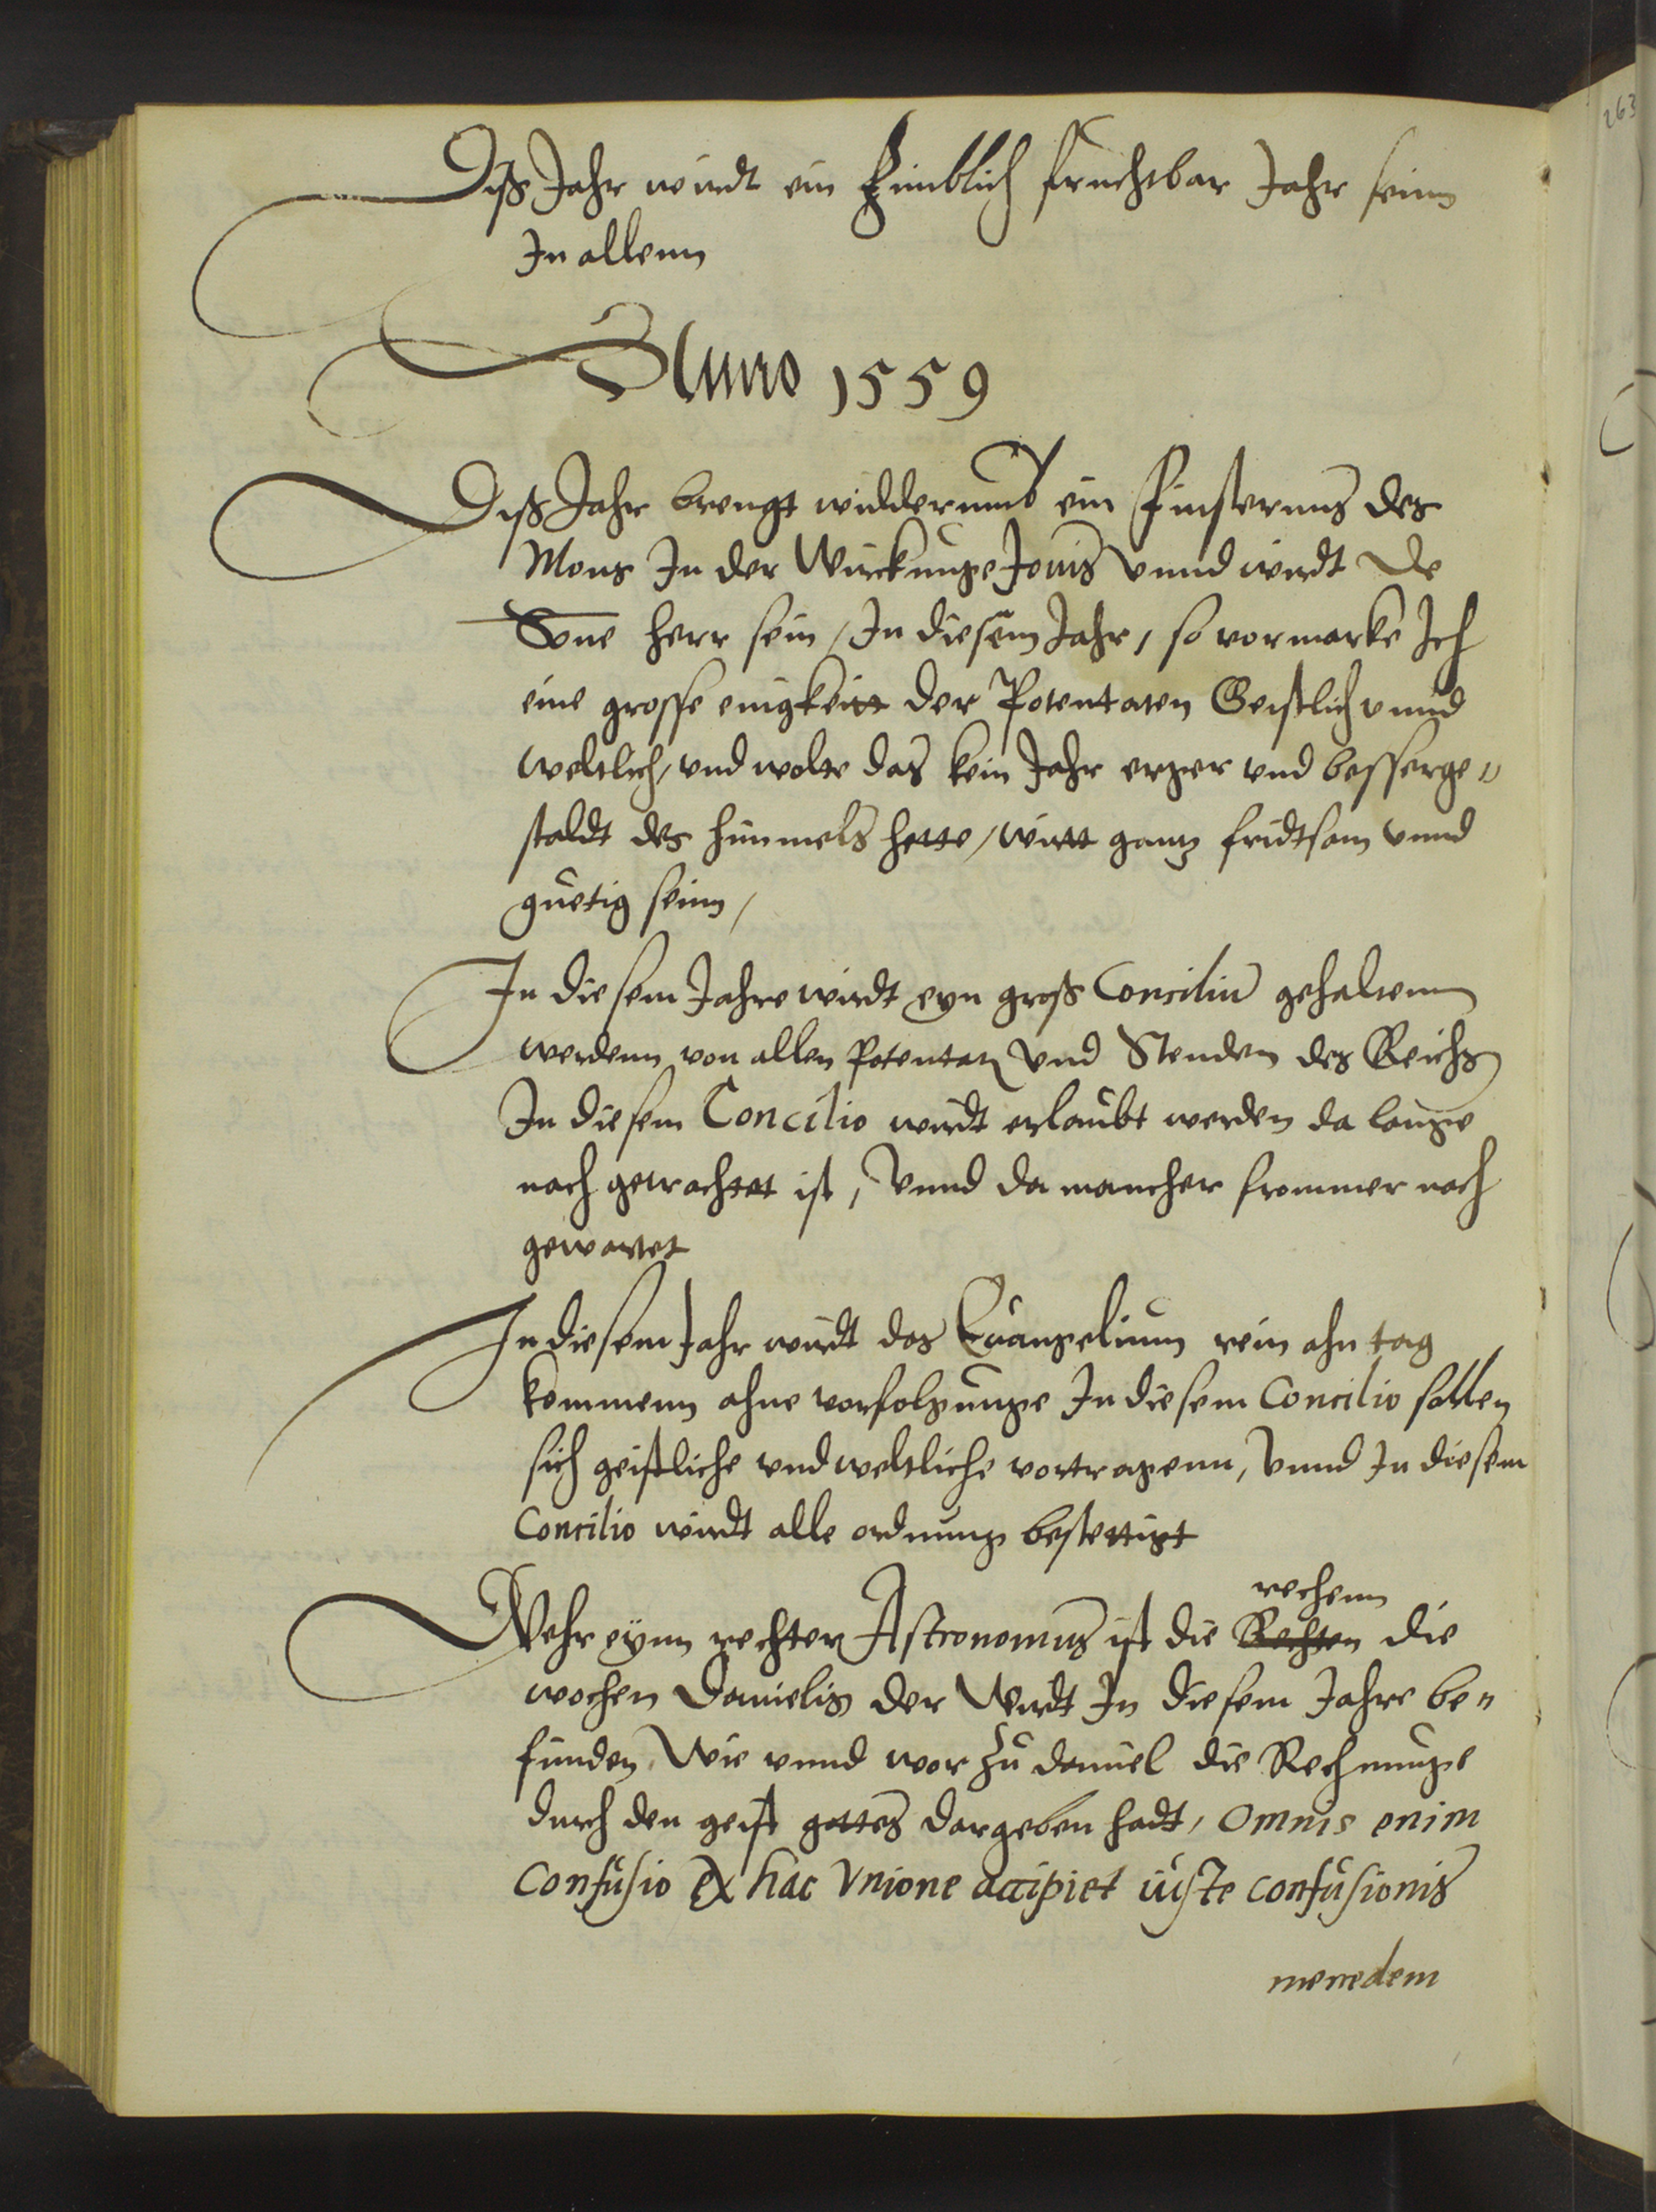 Diß Jahr wirdt ein Zimblich fruchtbar Jahr seinn
In allenn
Anno 1559
Diß Jahr brengt widderumb ein Finsternus des
Mons In der Wirckunge Jouis vnnd wirdt De
Sone herr sein / In diesem Jahr, so vormarke Ich
eine grosse einigkeitt der Potentaten Geistlich vnnd
weltlich, vnd wolte das kein Jahr erger vnd besser ge„
staldt des himmels hette / wirtt gantz fridtsam vnnd
guetig seinn /
In diesem Jahre wirdt eyn groß Conciliu gehaltenn
werdenn von allen Potentaten vnd Stenden des Reichs
In diesem Concilio wirdt erlaubt werden da lange
nach getrachtet ist, Vnnd da mancher frommer nach
gewartet
In diesem Jahr wirdt das Euangelium rein ahn tag
kommenn ahne vorfolgunge In diesem Concilio sollen
sich geistliche vnd weltliche vortragenn, Vnnd In diesem
Concilio wirdt alle ordnung bestettigt
rechenn
Wehr eynn rechter Astronomus ist die Rechten die
wochen Danielis der Werdt In diesem Jahre be„
funden, Wie vnnd wor zu daniel die Rechnunge
durch den geist gottes dargeben hadt, Omnis enim
Confusio Ex hac Vnione accipiet iuste confusionis
mercedem
263